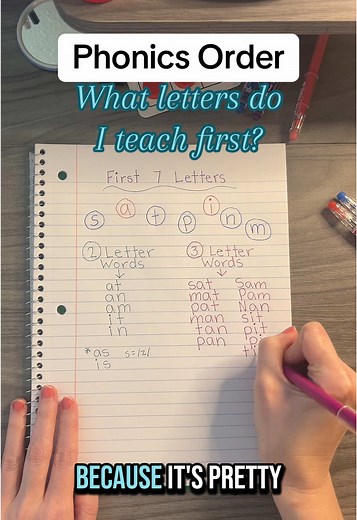 Phonics Order
What letters do
I teach first?
First 7 Letters
s a t p i n m
2 Letter Words
3 Letter Words
at
an
am
it
in
*as s=/z/
is
sat Sam
mat Pam
pat Nan
man sit
tan pit
pan
BECAUSE IT'S PRETTY